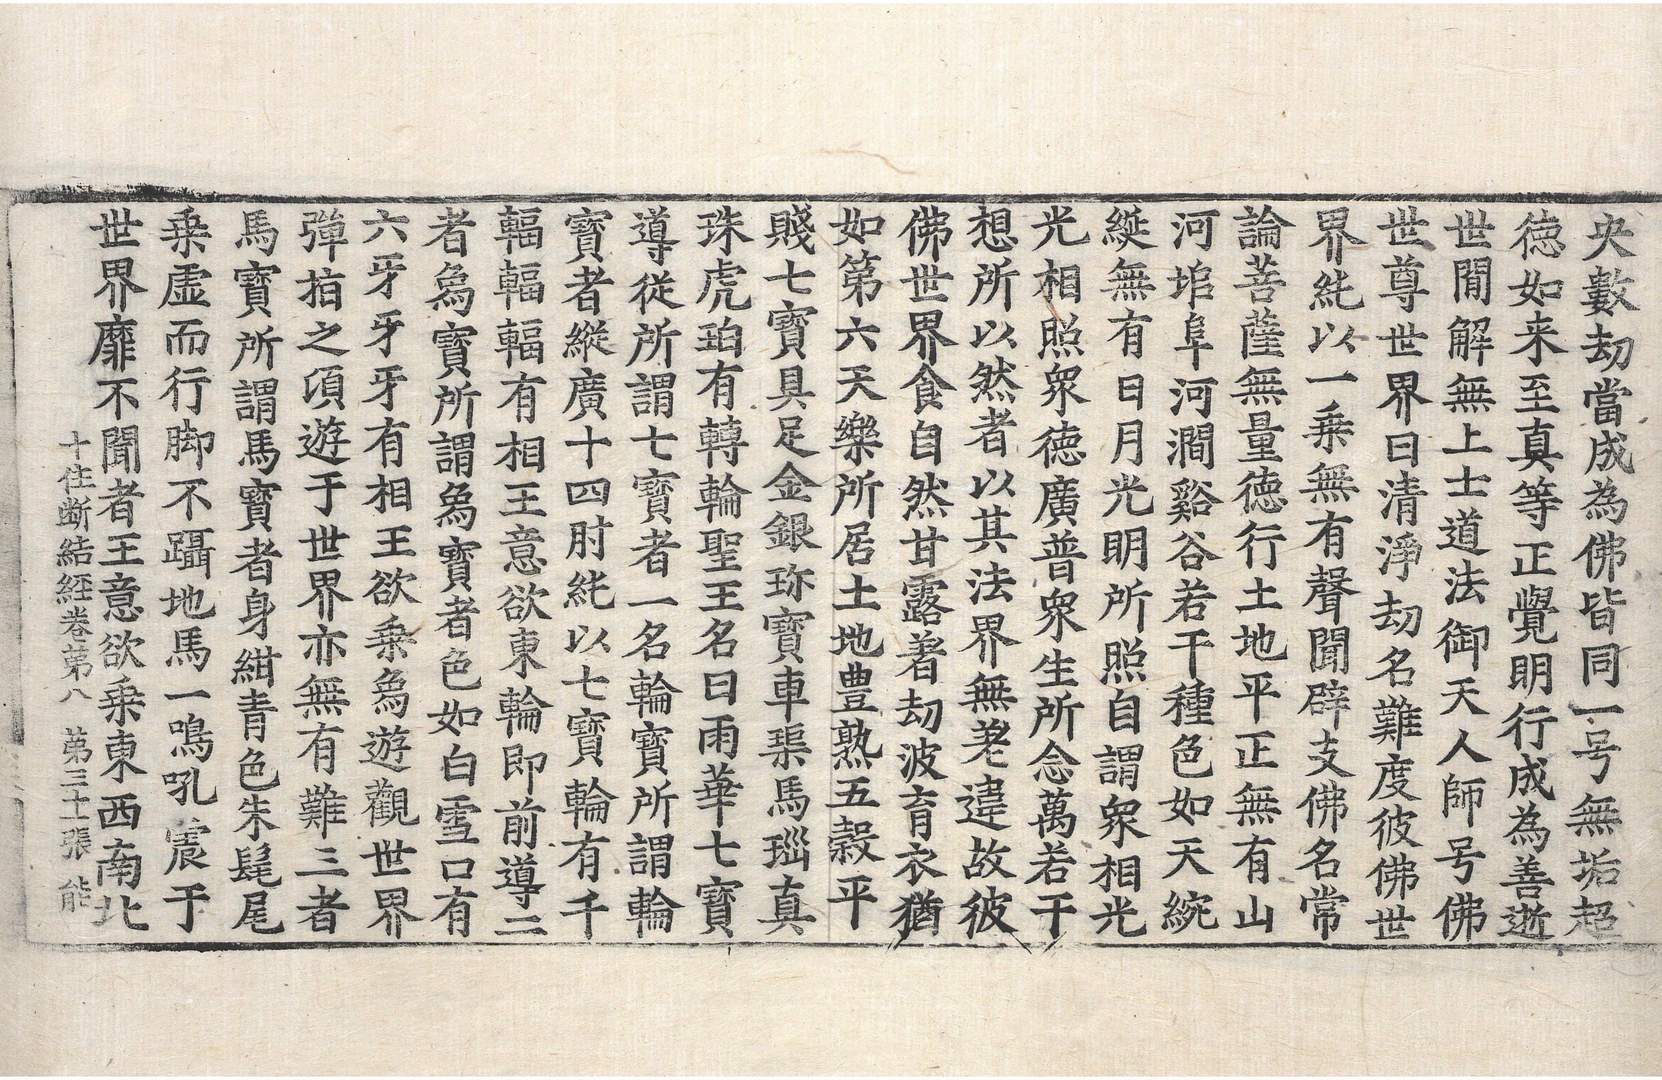 央數劫當成為佛皆同一号無垢超
德如来至真等正覺明行成為善逝
世間解無上士道法御天人師号佛
世尊世界曰清淨劫名難度彼佛世
界純以一乗無有聲聞辟支佛名常
論菩薩無量德行土地平正無有山
河塠阜河澗谿谷若干種色如天綩
綖無有日月光明所照自謂衆相光
光相照衆德廣普衆生所念萬若干
想所以然者以其法界無差違故彼
佛世界食自然甘露著劫波育衣猶
如第六天樂所居土地豊熟五穀平
賤七寶具足金銀珎寶車璖馬瑙真
珠虎珀有轉輪聖王名曰雨華七寶
導從所謂七寶者一名輪寶所謂輪
寶者縱廣十四肘純以七寶輪有千
輻輻輻有相王意欲東輪即前導二
者為寶所謂為寶者色如白雪口有
六牙牙牙有相王欲乗為遊觀世界
彈拍之頃遊于世界亦無有難三者
馬寶所謂馬寶者身紺青色朱髦尾
乗虛而行脚不躡地馬一鳴吼震于
世界靡不聞者王意欲乗東西南北
十住断結經卷第八 第三十張 能